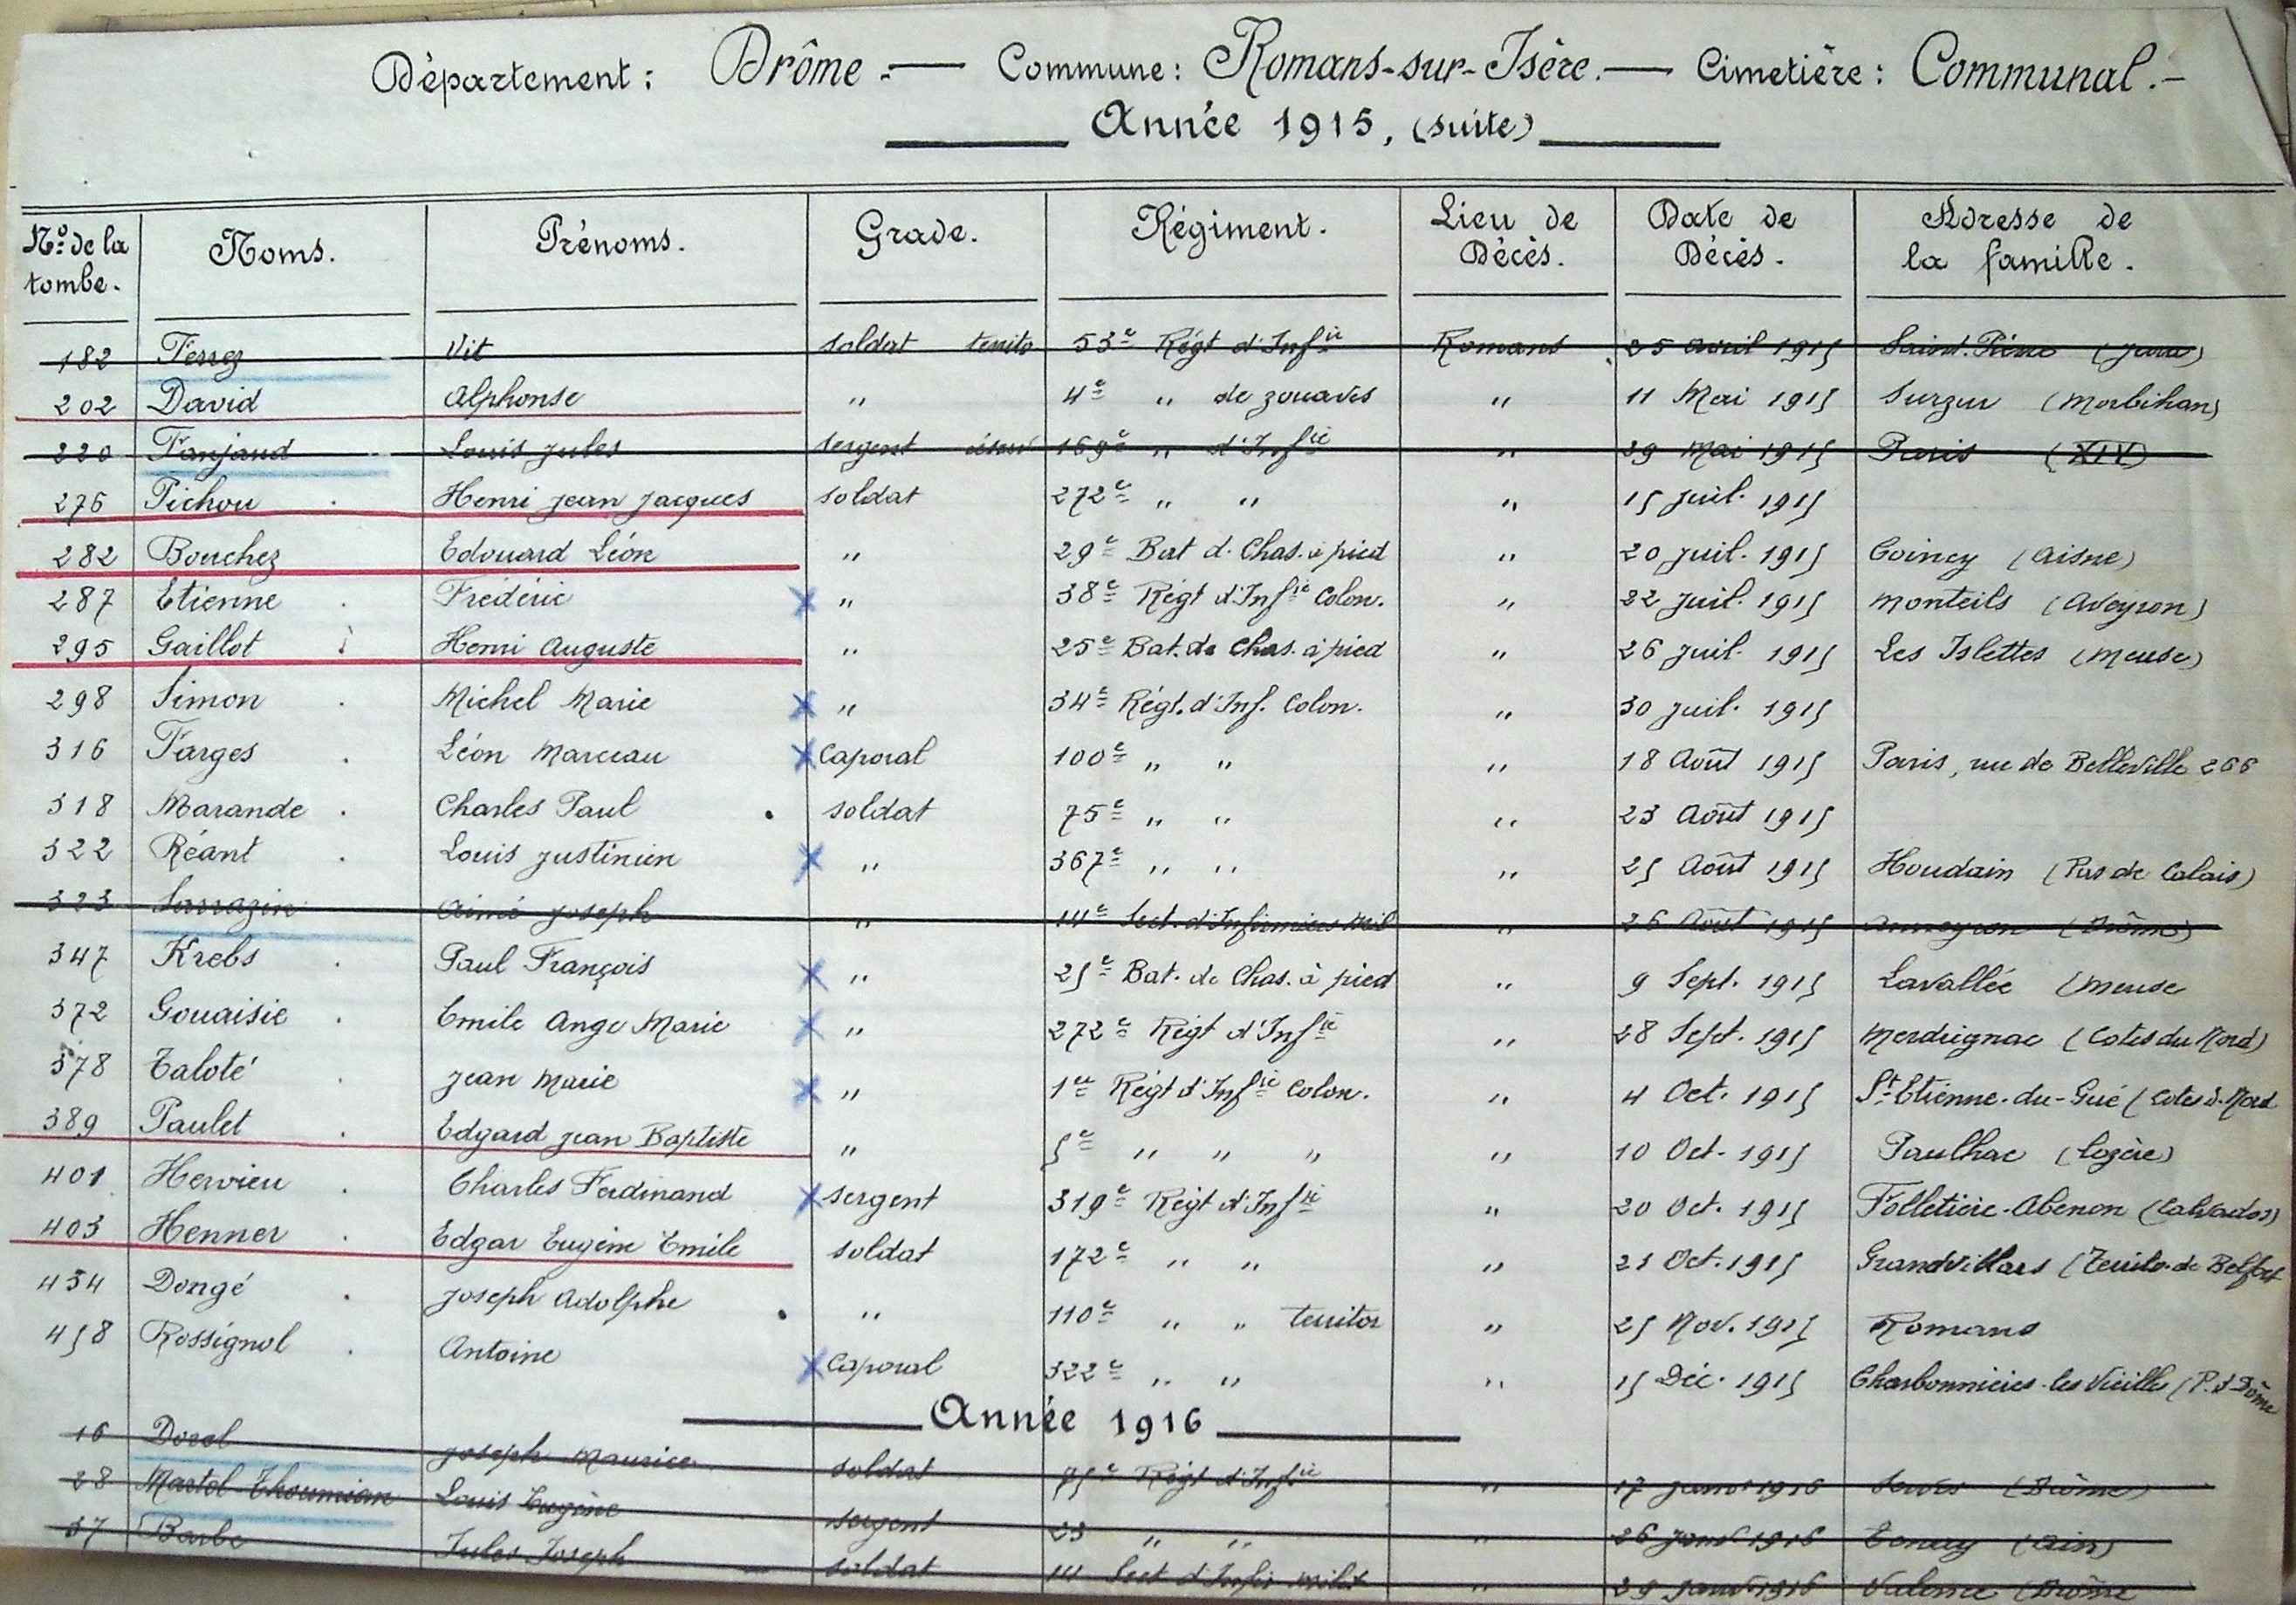 Département: Drôme.— Commune: Romans-sur-Isère.— Cimetière: Communal.-
Année 1915, (suite)
N° de la tombe. Noms. Prénoms. Grade. Régiment. Lieu de Décès. Date de Décès. Adresse de la famille.
182 Ferrez Vit soldat territo 53e Régt d'Infie Romans 25 avril 1915 Saint-Pierre (Jura)
202 David Alphonse " 4e " de zouaves " 11 Mai 1915 Surzur (Morbihan)
220 Fanjaud Louis Jules sergent 169e " d'Infie " 29 Mai 1915 Paris (XIV)
276 Pichou Henri Jean Jacques soldat 272e " " " 15 Juil. 1915
282 Bouchez Edouard Léon " 29e Bat d. Chas. à pied " 20 Juil. 1915 Coincy (Aisne)
287 Etienne Frédéric " 38e Régt d'Infie Colon. " 22 Juil. 1915 Monteils (Aveyron)
295 Gaillot Henri Auguste " 25e Bat. de Chas. à pied " 26 Juil. 1915 Les Islettes (Meuse)
298 Simon Michel Marie " 34e Régt. d'Inf. Colon. " 30 Juil. 1915
316 Farges Léon Marceau Caporal 100e " " " 18 Août 1915 Paris, rue de Belleville 266
318 Marande Charles Paul soldat 75e " " " 23 Août 1915
322 Réant Louis Justinien " 367e " " " 25 Août 1915 Houdain (Pas de Calais)
323 Sarrazin Aimé Joseph " 14e Sect. d'Infirmiers Mil " 26 Août 1915 Anneyron (Drôme)
347 Krebs Paul François " 25e Bat. de Chas. à pied " 9 Sept. 1915 Lavallée (Meuse
372 Gouaisie Emile Ange Marie " 272e Régt d'Infie " 28 Sept. 1915 Merdrignac (Cotes du Nord)
378 Taloté Jean Marie " 1er Régt d'Infie Colon. " 4 Oct. 1915 St-Etienne-du-Gué (Cotes d. Nord
389 Paulet Edgard Jean Baptiste " 5e " " " " 10 Oct- 1915 Paulhac (Lozère)
401 Hervieu Charles Ferdinand sergent 319e Régt d'Infie " 20 Oct. 1915 Folletière-Abenon (Calvados)
403 Henner Edgar Eugène Emile soldat 172e " " " 21 Oct. 1915 Grandvillars (Territo. de Belfort
434 Dongé Joseph Adolphe " 110e " " territor " 25 Nov. 1915 Romans
458 Rossignol Antoine Caporal 322e " " " 15 Déc. 1915 Charbonnières-les Vieilles (P. d Dôme
Année 1916
16 Dorol Joseph Maurice soldat 75e Régt d'Infie " 17 janv 1916 Serves (Drôme)
28 Martel-Thoumian Louis Eugène sergent 23 " " " 26 janv 1916 Tenay (Ain)
37 Barbe Jules Joseph soldat 14 Sect d'Infir milit " 29 janv 1916 Valence (Drôme